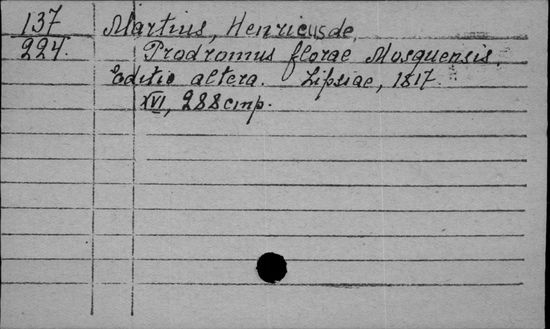 137 Martius, Henricus de,
224. Prodromus florae Mosquensis.
Editio altera. Lipsiae, 1817.
XVI, 288 стр.